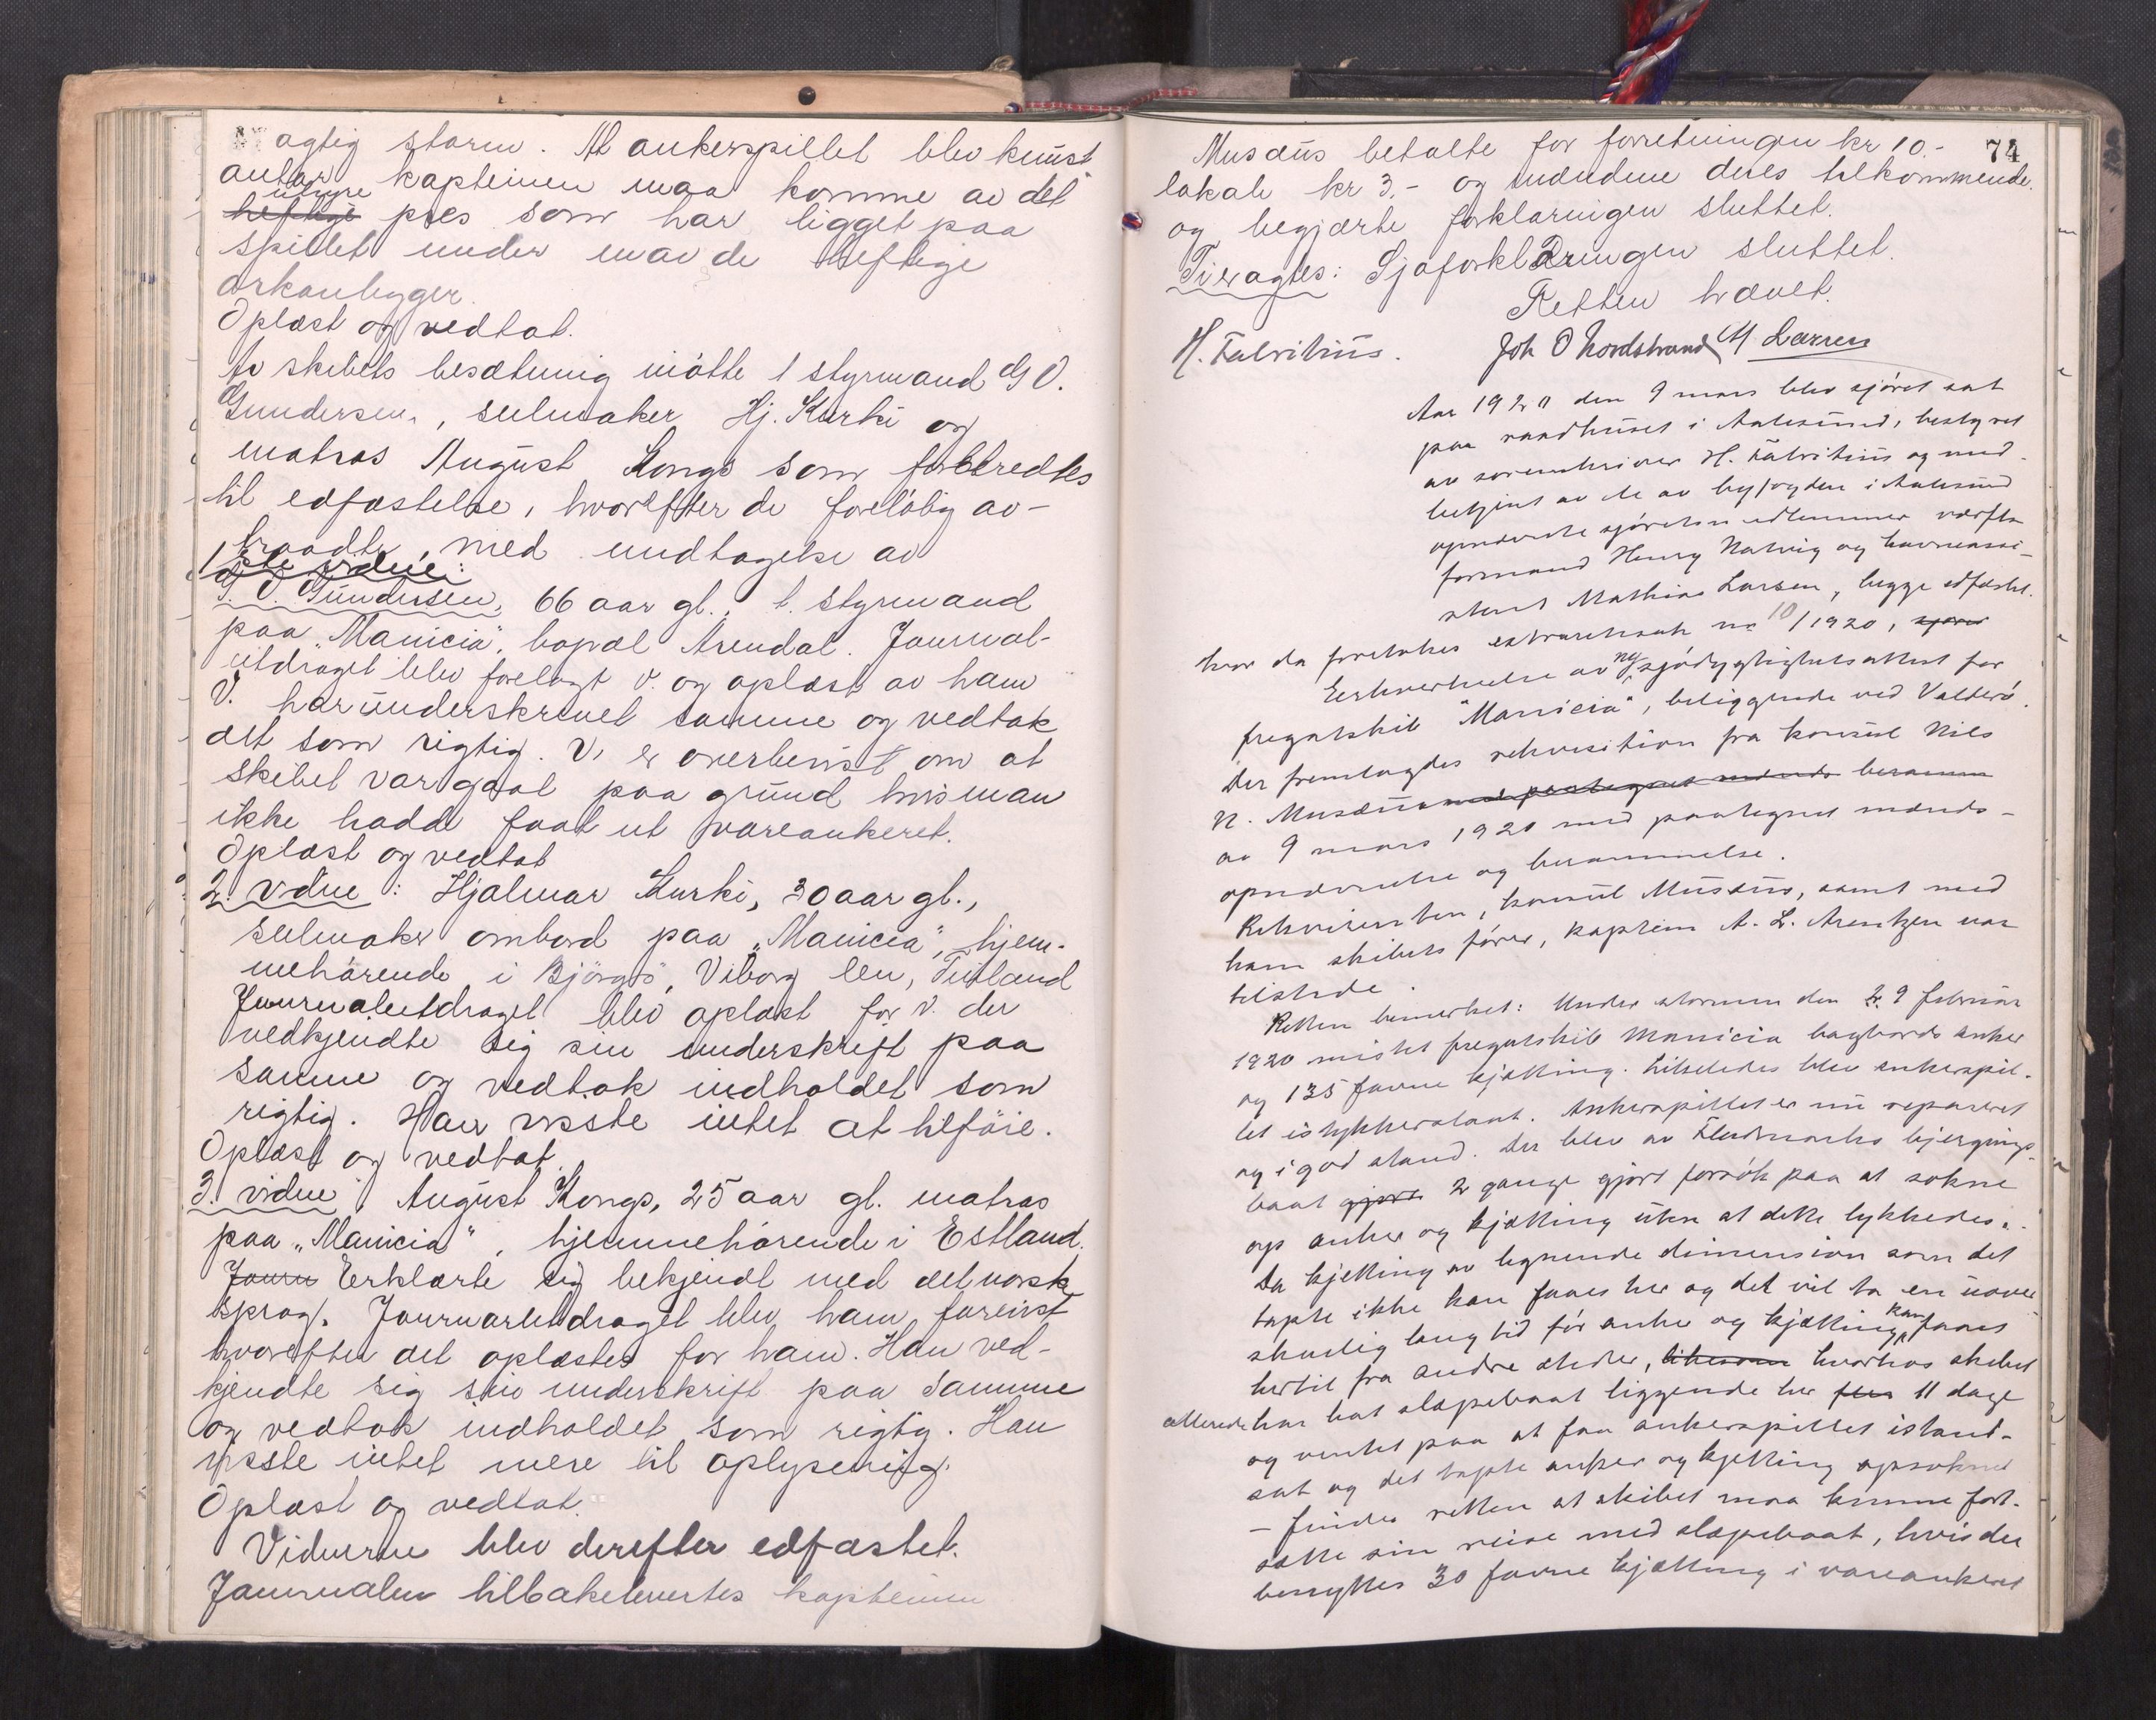 agtig storm. At ankerspillet blev knust
antar kapteinen maa komme av det
uhyre
heftige pres som har ligget paa
spillet under de heftige
orkanbygger.
Oplæst og vedtat.
Av skibets besætning møtte 1 styrmand G O.
Gundersen, seilmaker Hj. Kurki og
matros August Kongs som forberedtes
til edfæstelse, hvorefter de foreløbig av-
traadte, med undtagelse av
1ste vidne:
G. O. Gundersen, 66 aar gl., 1. styrmand
paa "Manicia", bopæl Arendal. Journal-
utdraget blev forelagt V. og oplæst av ham
V. har underskrevet samme og vedtok
det som rigtig. V. er overbevist om at
skibet var gaat paa grund hvis man
ikke hadde faat ut vareankeret.
Oplæst og vedtat
2. vidne: Hjalmar Kurki, 30 aar gl.,
seilmaker ombord paa "Manicia", hjem-
mehørende i Björgö, Viborg len, Finland
Journalutdraget blev oplæst for V. der
vedkjendte sig sin underskrift paa
samme og vedtok indholdet som
rigtig. Han visste intet at tilföie.
Oplæst og vedtat.
3. vidne: August Kongs, 25 aar gl. matros
paa "Manicia", hjemmehörende i Estland.
Journ Erklærte sig bekjendt med det norske
sprog. Journalutdraget blev ham forevist
hvorefter det oplæstes for ham. Han ved-
kjendte sig sin underskrift paa samme
og vedtok indholdet som rigtig. Han
visste intet mere til oplysning.
Oplæst og vedtat.
Vidnerne blev derefter edfæstet.
Journalen tilbakelevertes kapteinen
74
Musæus betalte for forretningen kr 10.-
lokale kr 3.- og mændene deres tilkommende.
og begjærte forklaringen sluttet.
Tieragtes: Sjøforklaringen sluttet.
Retten hævet.
H. Falvitius. Joh O Nordstrand M Larsen
Aar 1920 den 9 mars blev sjöret sat
paa raadhuset i Aalesund, bestyret
av sorenskriver H. Falvitius og med-
betjent av de av byfogden i Aalesund
opnævnte sjöretsmedlemmer værfts-
formand Henry Natvig og havneassi-
stent Mathias Larsen, begge edfæstet.
hvor da foretokes extraretssak no 10/1920, sjøret
Erhvervelse av ny sjödygtighetsattest for
fregatskib "Manicia", beliggende ved Valderö.
Der fremlagdes rekvisition fra konsul Nils
N. Musæus med paategnet mænds beramm
av 9 mars 1920 med paategnet mænds-
opnævnelse og berammelse.
Rekvirenten, konsul Musæus, samt med
ham skibets förer, kaptein A. L. Arentzen var
tilstede.
Retten bemerket: Under stormen den 29 februar
1920 mistet fregatskib Manicia bagbords anker
og 135 favne kjetting. Likeledes blev ankerspil-
let istykkerslaat. Ankerspillet er nu reparert
og i god stand. Der blev av Flødmarks bjergnings-
baat gjort 2 gange gjort forsök paa at sokne
op anker og kjætting uten at dette lykkedes.
Da kjetting av lignende dimension som det
tapte ikke kan faaes her og det vil ta en uover-
skuelig lang tid för anker og kjætting kan faaes
hertil fra andre steder, likesom hvorhos skibet
allerede har hat slæpebaat liggende her flere 11 dage
og ventet paa at faa ankerspillet istand-
sat og det tapte anker og kjetting opsoknet
- finder retten at skibet maa kunne fort-
sætte sin reise med slæpebaat, hvis der
benyttes 30 favne kjætting i vareankeret